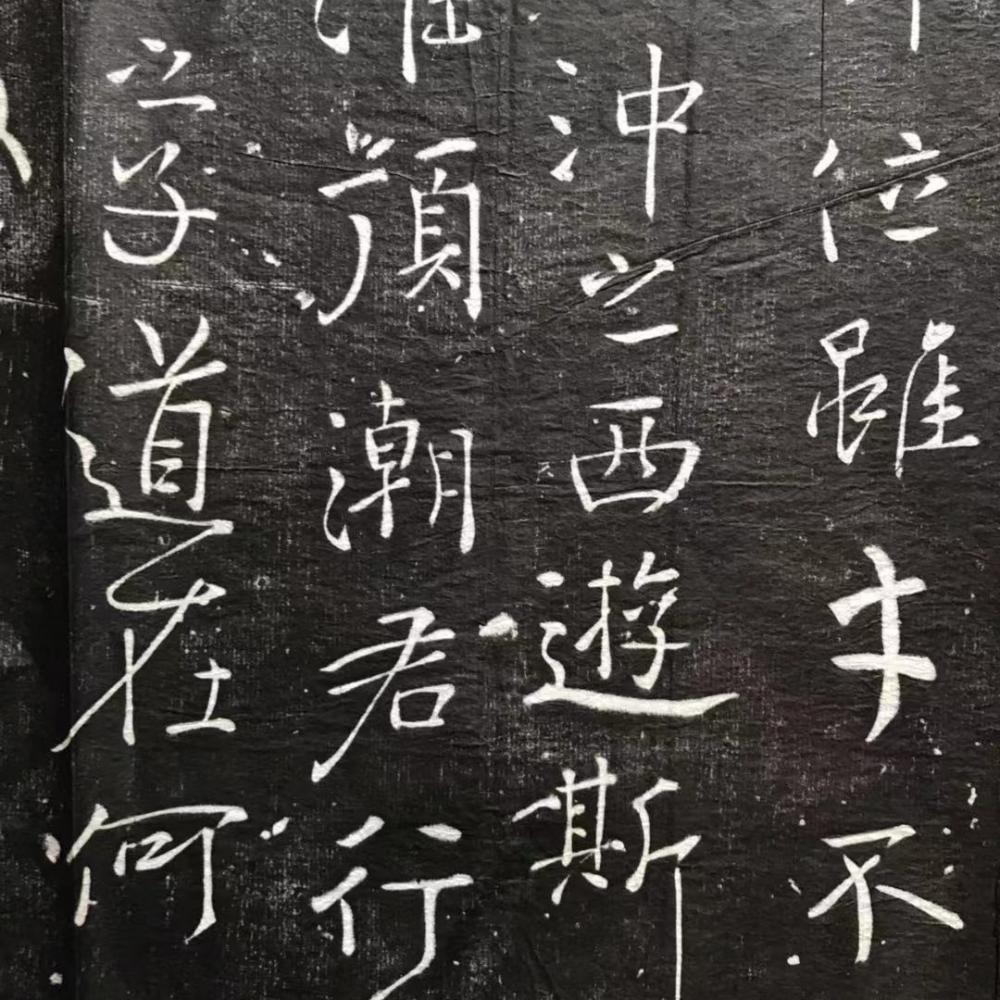 位雖才不
沖之西遊斯
須潮君行
学道在何